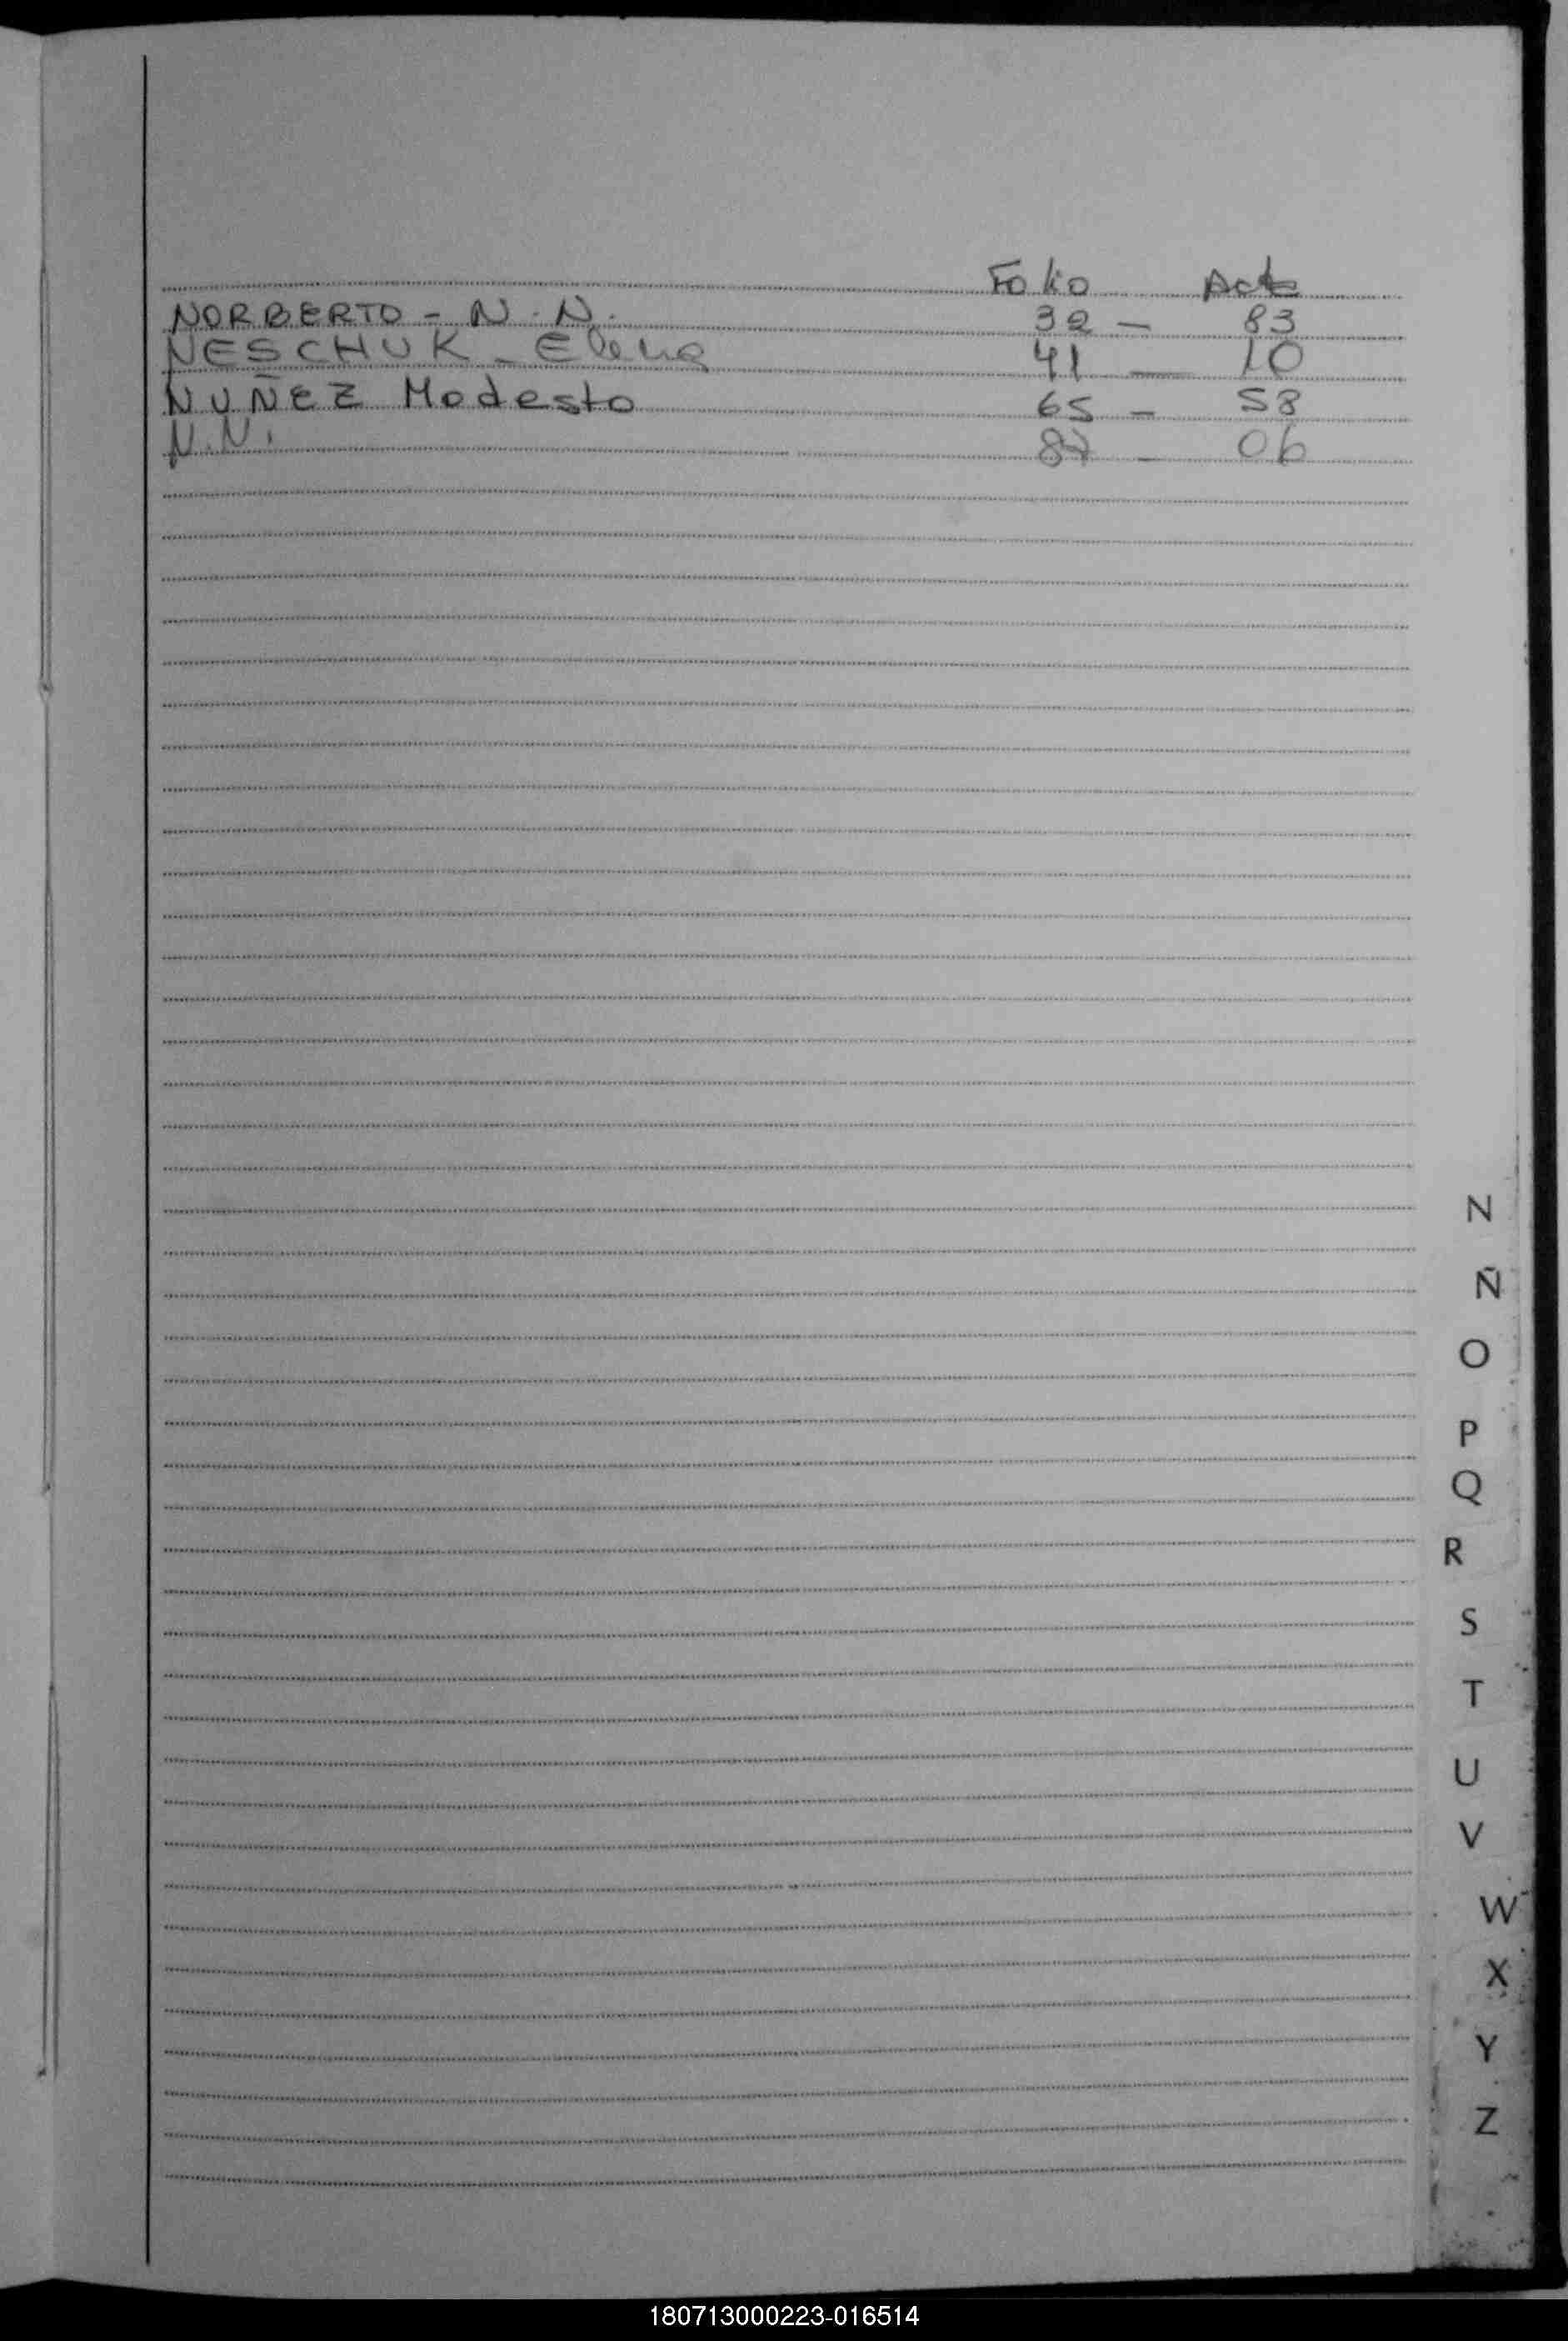 Folio Acta
NORBERTO - N.N. 32 - 83
NESCHUK - Elena 41 - 10
NUÑEZ Modesto 65 - 58
N.N. - 06
N
Ñ
O
P
Q
R
S
T
U
V
W
X
Y
Z
180713000223-016514